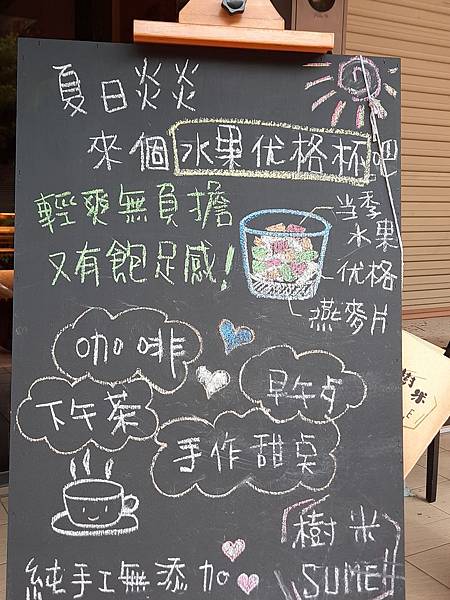 夏日炎炎
來個水果优格杯吧
輕爽無負擔
又有飽足感!
当季
水果
优格
燕麥片
咖啡
下午茶
早午歺
手作甜桌
樹米
SUME
純手工無添加
樹米